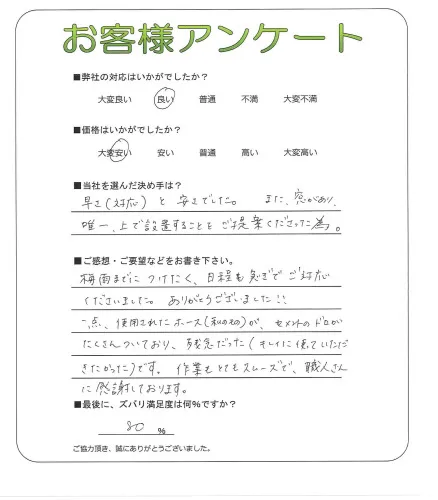 お客様アンケート
■弊社の対応はいかがでしたか?
大変良い 良い 普通 不満 大変不満
■価格はいかがでしたか?
大変安い 安い 普通 高い 大変高い
■当社を選んだ決め手は?
早さ(対応)と安さでした。 また、窓があり、
唯一、上で設置することをご提案くださった為。
■ご感想・ご要望などをお書き下さい。
梅雨までにつけたく、日程も急ぎでご対応
くださいました。ありがとうございました!!
一点、使用されたホース(私のもの)が、セメントのドロが
たくさんついており、残念だった(キレイに使っていただ
きたかった)です。作業もとてもスムーズで、職人さん
に感謝しております。
■最後に、ズバリ満足度は何%ですか?
80 %
ご協力頂き、誠にありがとうございました。